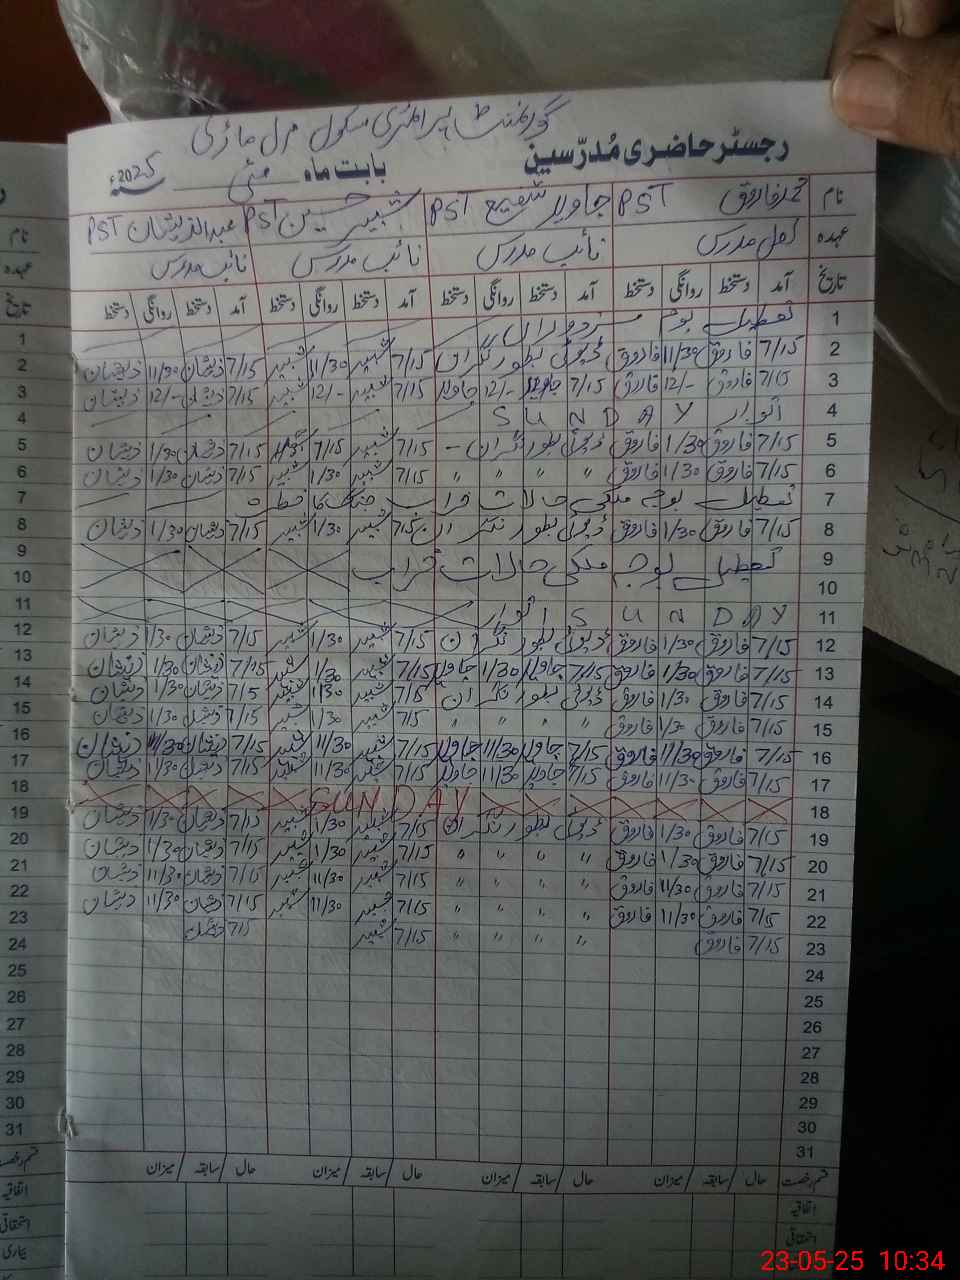 گورنمنٹ پرائمری سکول مرل ماڑی
رجسٹر حاضری مُدرّسین بابت ماہ مئی 2025ء
نام محمد فاروق PST جاوید شفیع PST شبیر حسین PST عبدالذیشان PST
عہدہ اول مدرس نائب مدرس نائب مدرس نائب مدرس
تاریخ آمد دستخط روانگی دستخط آمد دستخط روانگی دستخط آمد دستخط روانگی دستخط آمد دستخط روانگی دستخط
1 تعطیل یوم مزدوراں
2 7/15 فاروق 11/30 فاروق ڈیوٹی بطور نگران 7/15 شبیر 11/30 شبیر 7/15 ذیشان 11/30 ذیشان
3 7/15 فاروق 12/- فاروق 7/15 جاوید 12/- جاوید 7/15 شبیر 12/- شبیر 7/15 ذیشان 12/- ذیشان
4 اتوار SUNDAY
5 7/15 فاروق 1/30 فاروق ڈیوٹی بطور نگران - 7/15 شبیر 7/15 7/15 ذیشان 1/30 ذیشان
6 7/15 فاروق 1/30 فاروق " " " " 7/15 شبیر 1/30 شبیر 7/15 ذیشان 1/30 ذیشان
7 تعطیل بوجہ ملکی حالات خراب جنگ کا خطرہ
8 7/15 فاروق 1/30 فاروق ڈیوٹی بطور نگران 7/15 شبیر 1/30 شبیر 7/15 ذیشان 1/30 ذیشان
9 تعطیل بوجہ ملکی حالات خراب
10
11 SUNDAY اتوار
12 7/15 فاروق 1/30 فاروق ڈیوٹی بطور نگران 7/15 شبیر 1/30 شبیر 7/15 ذیشان 1/30 ذیشان
13 7/15 فاروق 1/30 فاروق 7/15 جاوید 1/30 جاوید 7/15 شبیر 1/30 شبیر 7/15 ذیشان 1/30 ذیشان
14 7/15 فاروق 1/30 فاروق ڈیوٹی بطور نگران 7/15 شبیر 1/30 شبیر 7/15 ذیشان 1/30 ذیشان
15 7/15 فاروق 1/30 فاروق " " " 7/15 شبیر 1/30 شبیر 7/15 ذیشان 1/30 ذیشان
16 7/15 فاروق 11/30 فاروق 7/15 جاوید 11/30 جاوید 7/15 شبیر 11/30 شبیر 7/15 ذیشان 11/30 ذیشان
17 7/15 فاروق 11/30 فاروق 7/15 جاوید 11/30 جاوید 7/15 شبیر 11/30 شبیر 7/15 ذیشان 11/30 ذیشان
18 SUNDAY
19 7/15 فاروق 1/30 فاروق ڈیوٹی بطور نگران 7/15 شبیر 1/30 شبیر 7/15 ذیشان 1/30 ذیشان
20 7/15 فاروق 1/30 فاروق " " " " 7/15 شبیر 1/30 شبیر 7/15 ذیشان 1/30 ذیشان
21 7/15 فاروق 11/30 فاروق " " " " 7/15 شبیر 11/30 شبیر 7/15 ذیشان 11/30 ذیشان
22 7/15 فاروق 11/30 فاروق " " " " 7/15 شبیر 11/30 شبیر 7/15 ذیشان 11/30 ذیشان
23 7/15 فاروق " " " " 7/15 شبیر 7/15 ذیشان
24
25
26
27
28
29
30
31
قسم رخصت حال / سابقہ / میزان حال / سابقہ / میزان حال / سابقہ / میزان حال / سابقہ / میزان
اتفاقیہ
استحقاقی
نام
عہدہ
تاریخ
1
2
3
4
5
6
7
8
9
10
11
12
13
14
15
16
17
18
19
20
21
22
23
24
25
26
27
28
29
30
31
قسم رخصت
اتفاقیہ
استحقاقی
بیماری
23-05-25 10:34